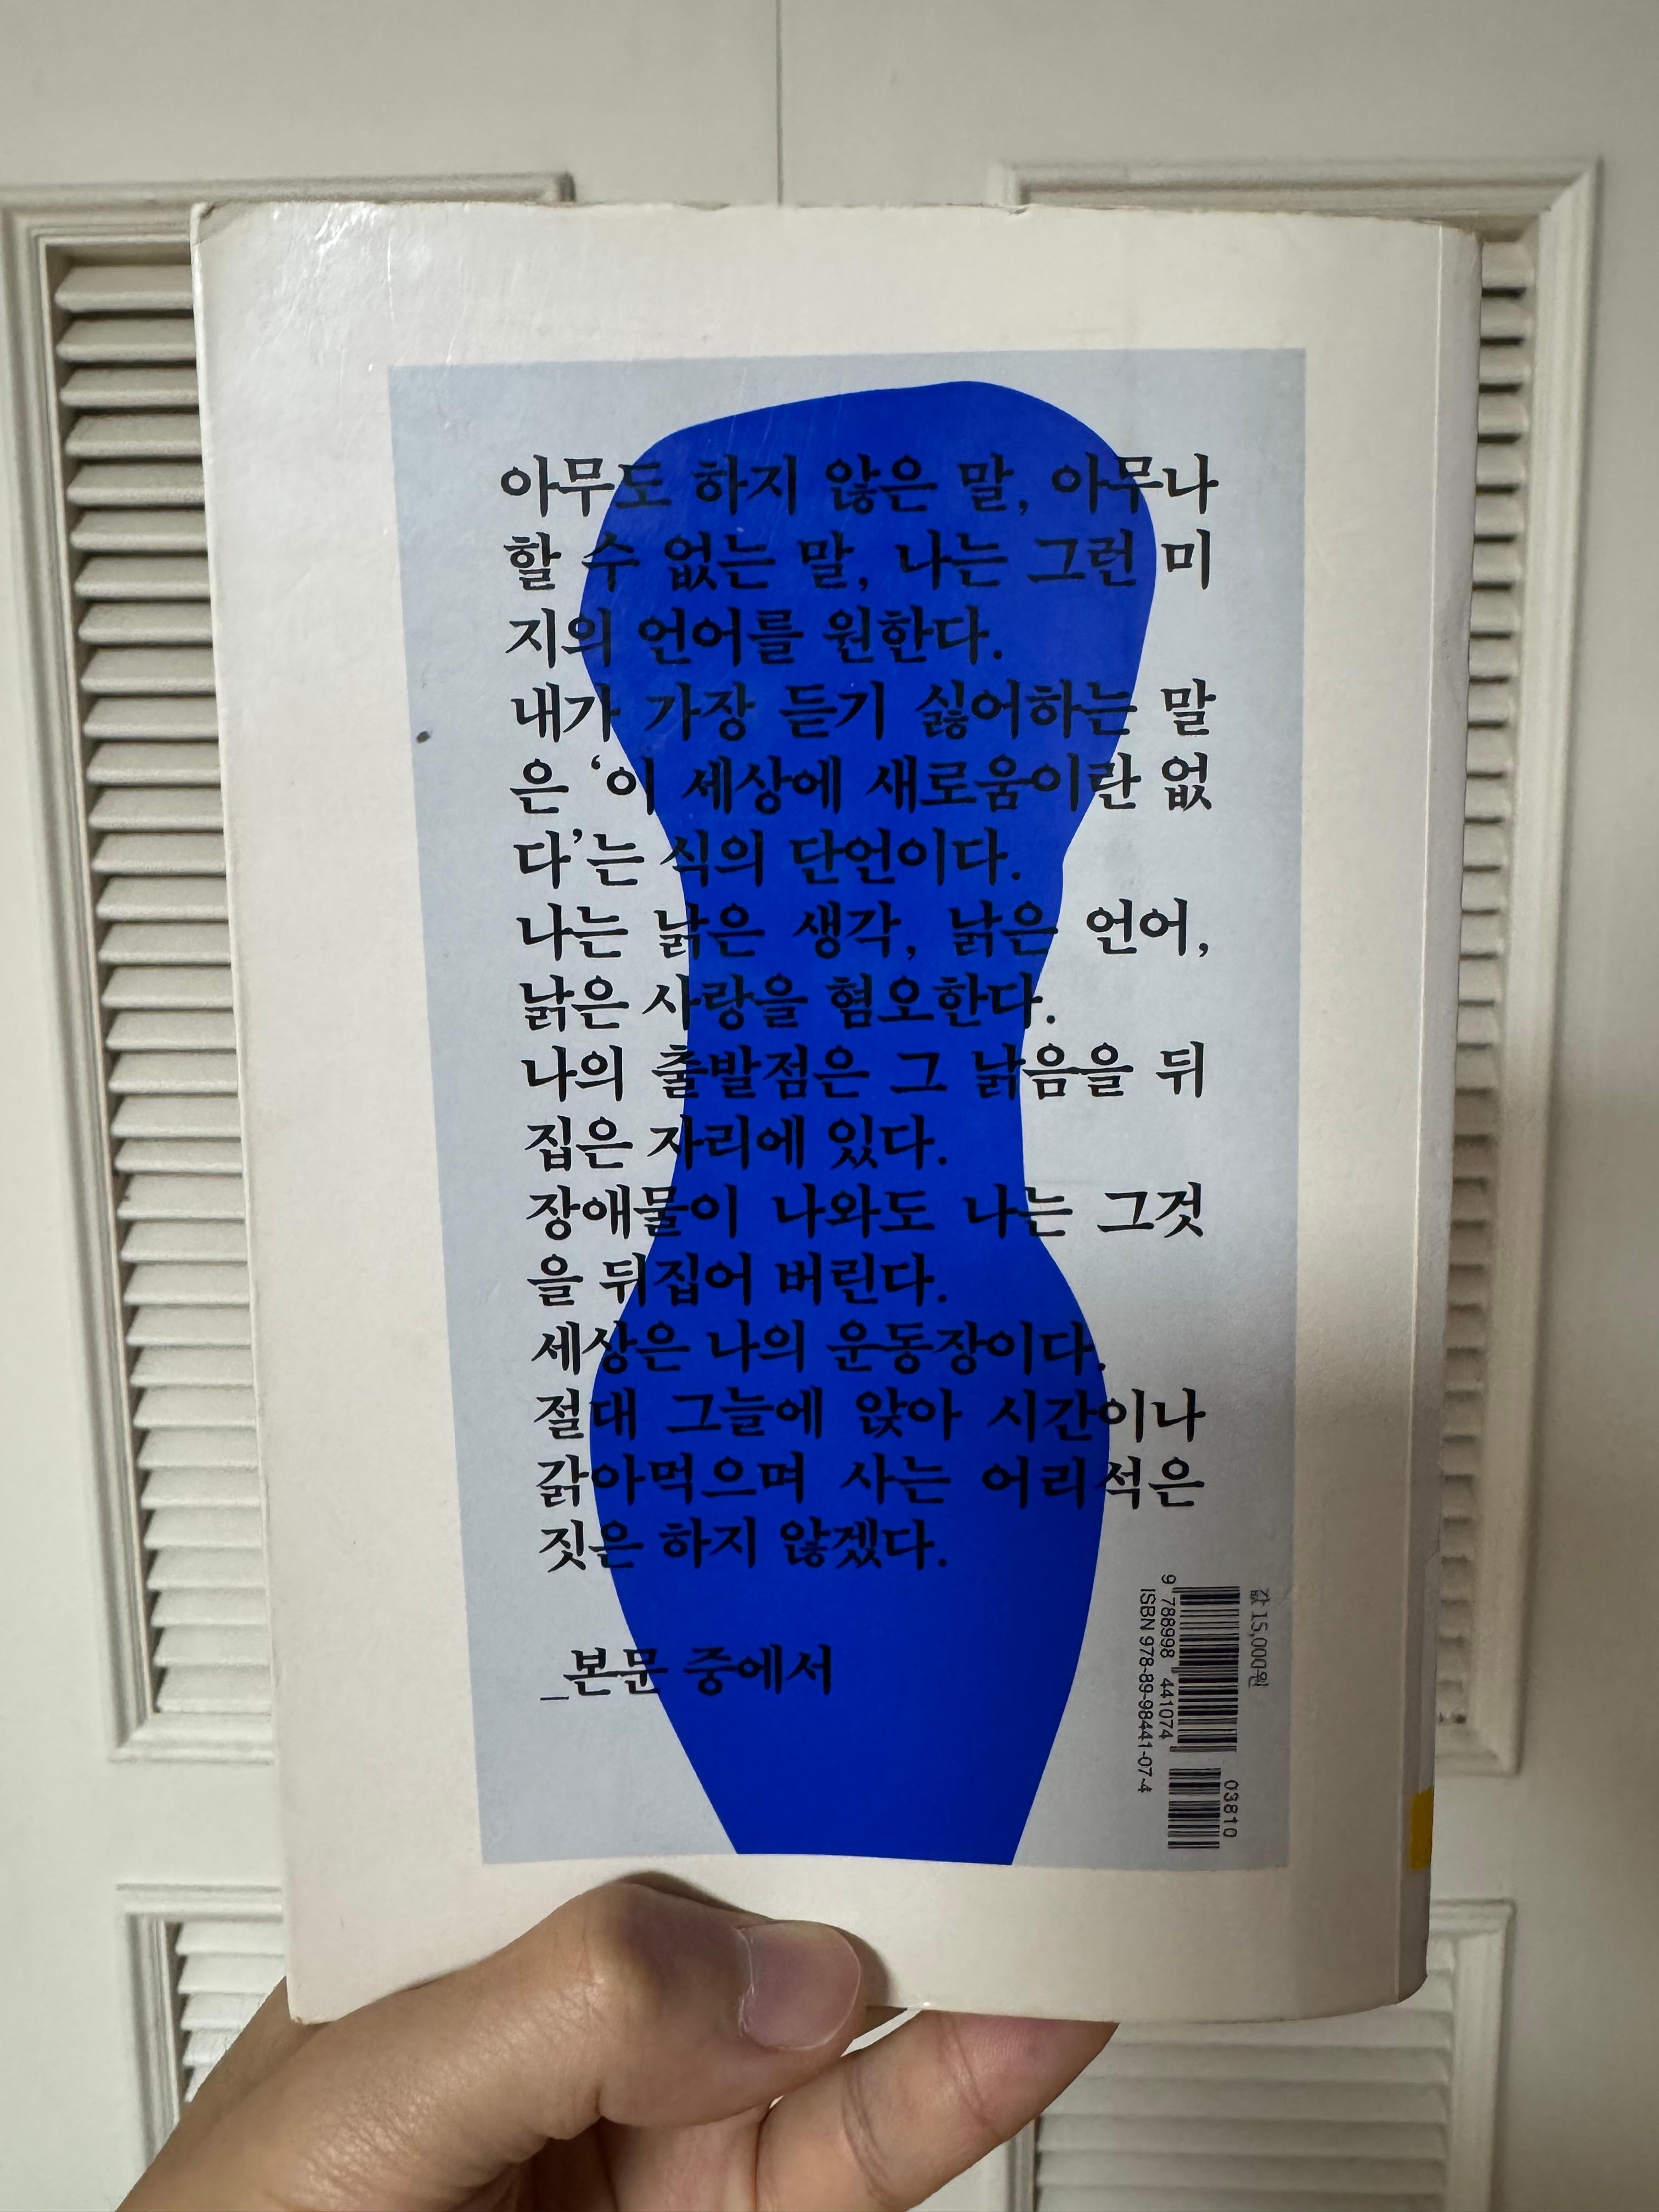 아무도 하지 않은 말, 아무나
할 수 없는 말, 나는 그런 미
지의 언어를 원한다.
내가 가장 듣기 싫어하는 말
은 ‘이 세상에 새로움이란 없
다’는 식의 단언이다.
나는 낡은 생각, 낡은 언어,
낡은 사랑을 혐오한다.
나의 출발점은 그 낡음을 뒤
집은 자리에 있다.
장애물이 나와도 나는 그것
을 뒤집어 버린다.
세상은 나의 운동장이다.
절대 그늘에 앉아 시간이나
갉아먹으며 사는 어리석은
짓은 하지 않겠다.
_본문 중에서
값 15,000원
03810
9 788998 441074
ISBN 978-89-98441-07-4